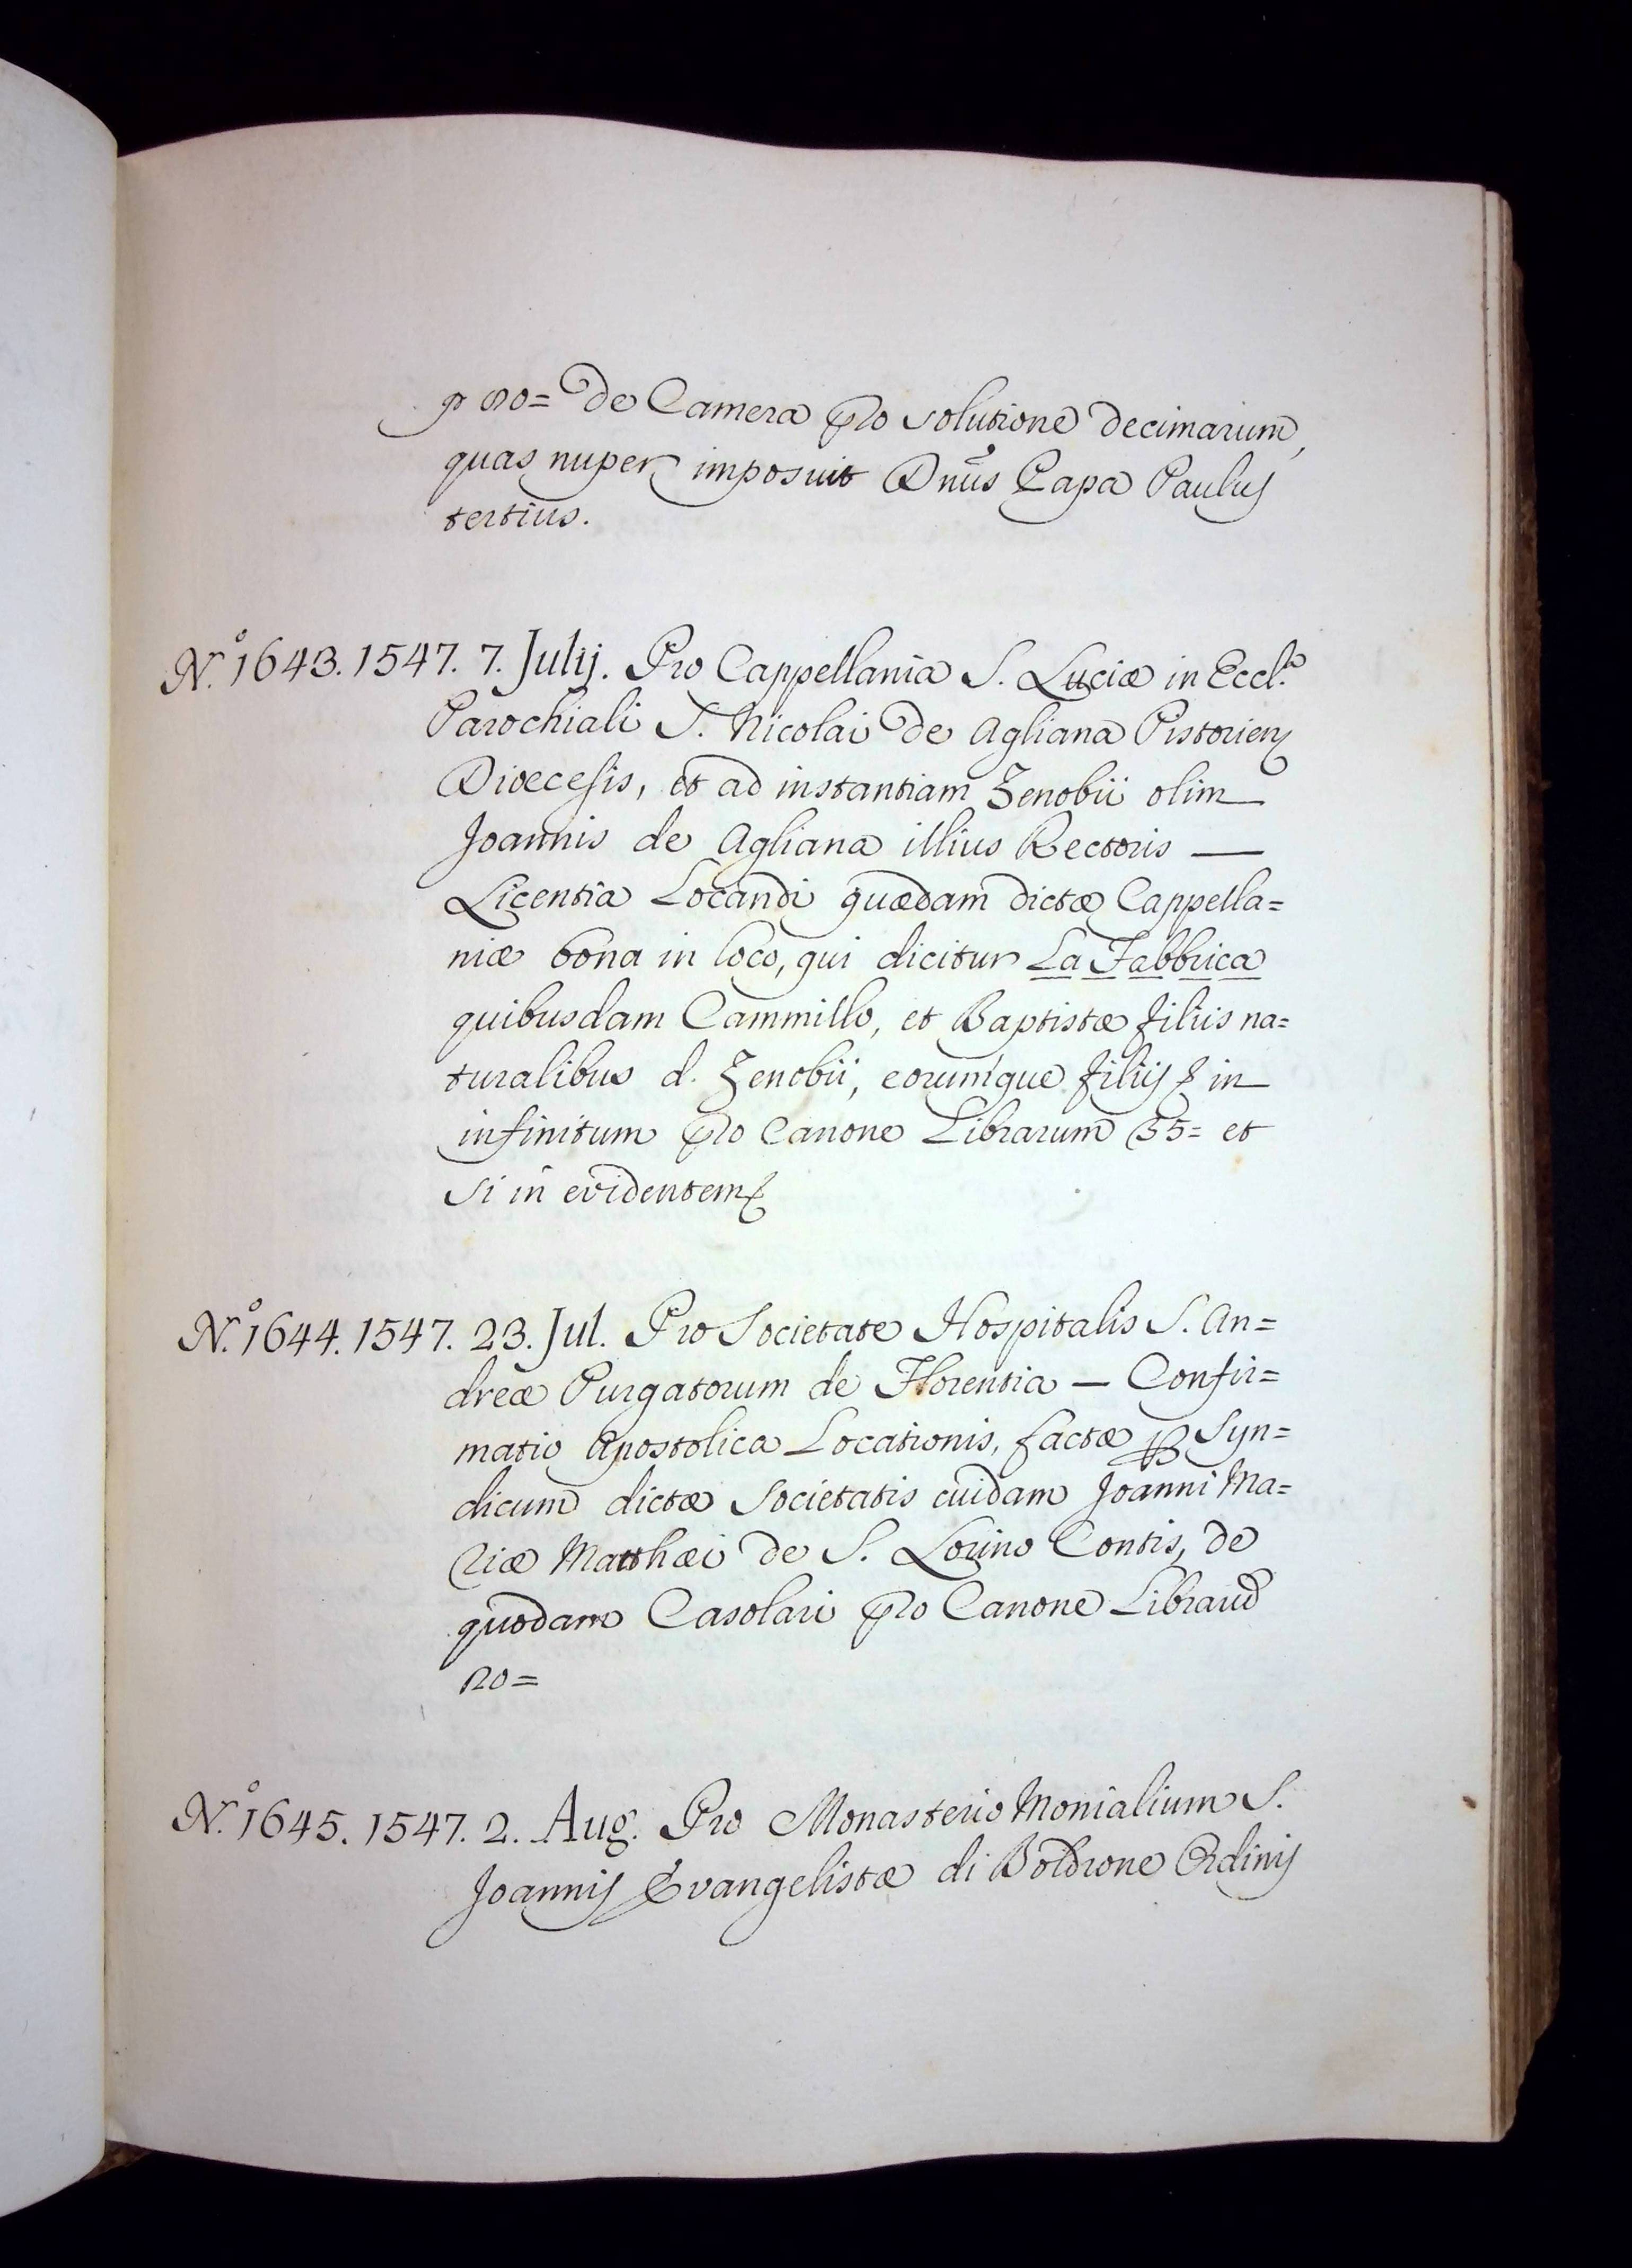 de Camera pro solutione decimarum,
quas nuper imposuit Dnus Papa Paulus
tertius.
N.º 1643. 1547. 7. Julij. Pro Cappellania S. Luciæ in Eccl.ª
Parochiali S. Nicolai de Agliana Pistorien
Dioecesis, et ad instantiam Zenobii olim
Joannis de Agliana illius Rectoris —
Licentia Locandi quædam dictæ Cappella=
niæ bona in loco, qui dicitur La Fabbrica
quibusdam Cammillo, et Baptistæ filiis na=
turalibus d. Zenobii, eorumque filiis & in
infinitum pro Canone Librarum 35= et
si in evidentem &
N.º 1644. 1547. 23. Jul. Pro Societate Hospitalis S. An=
dreæ Purgatorum de Florentia — Confir=
matio Apostolica Locationis, factæ Syn=
dicum dictæ Societatis cuidam Joanni Ma=
riæ Matthæi de S. Lorino Contis, de
quodam Casolari pro Canone Librarum
20=
N.º 1645. 1547. 2. Aug. Pro Monasterio Monialium S.
Joannis Evangelistæ di Boldrone Ordinis